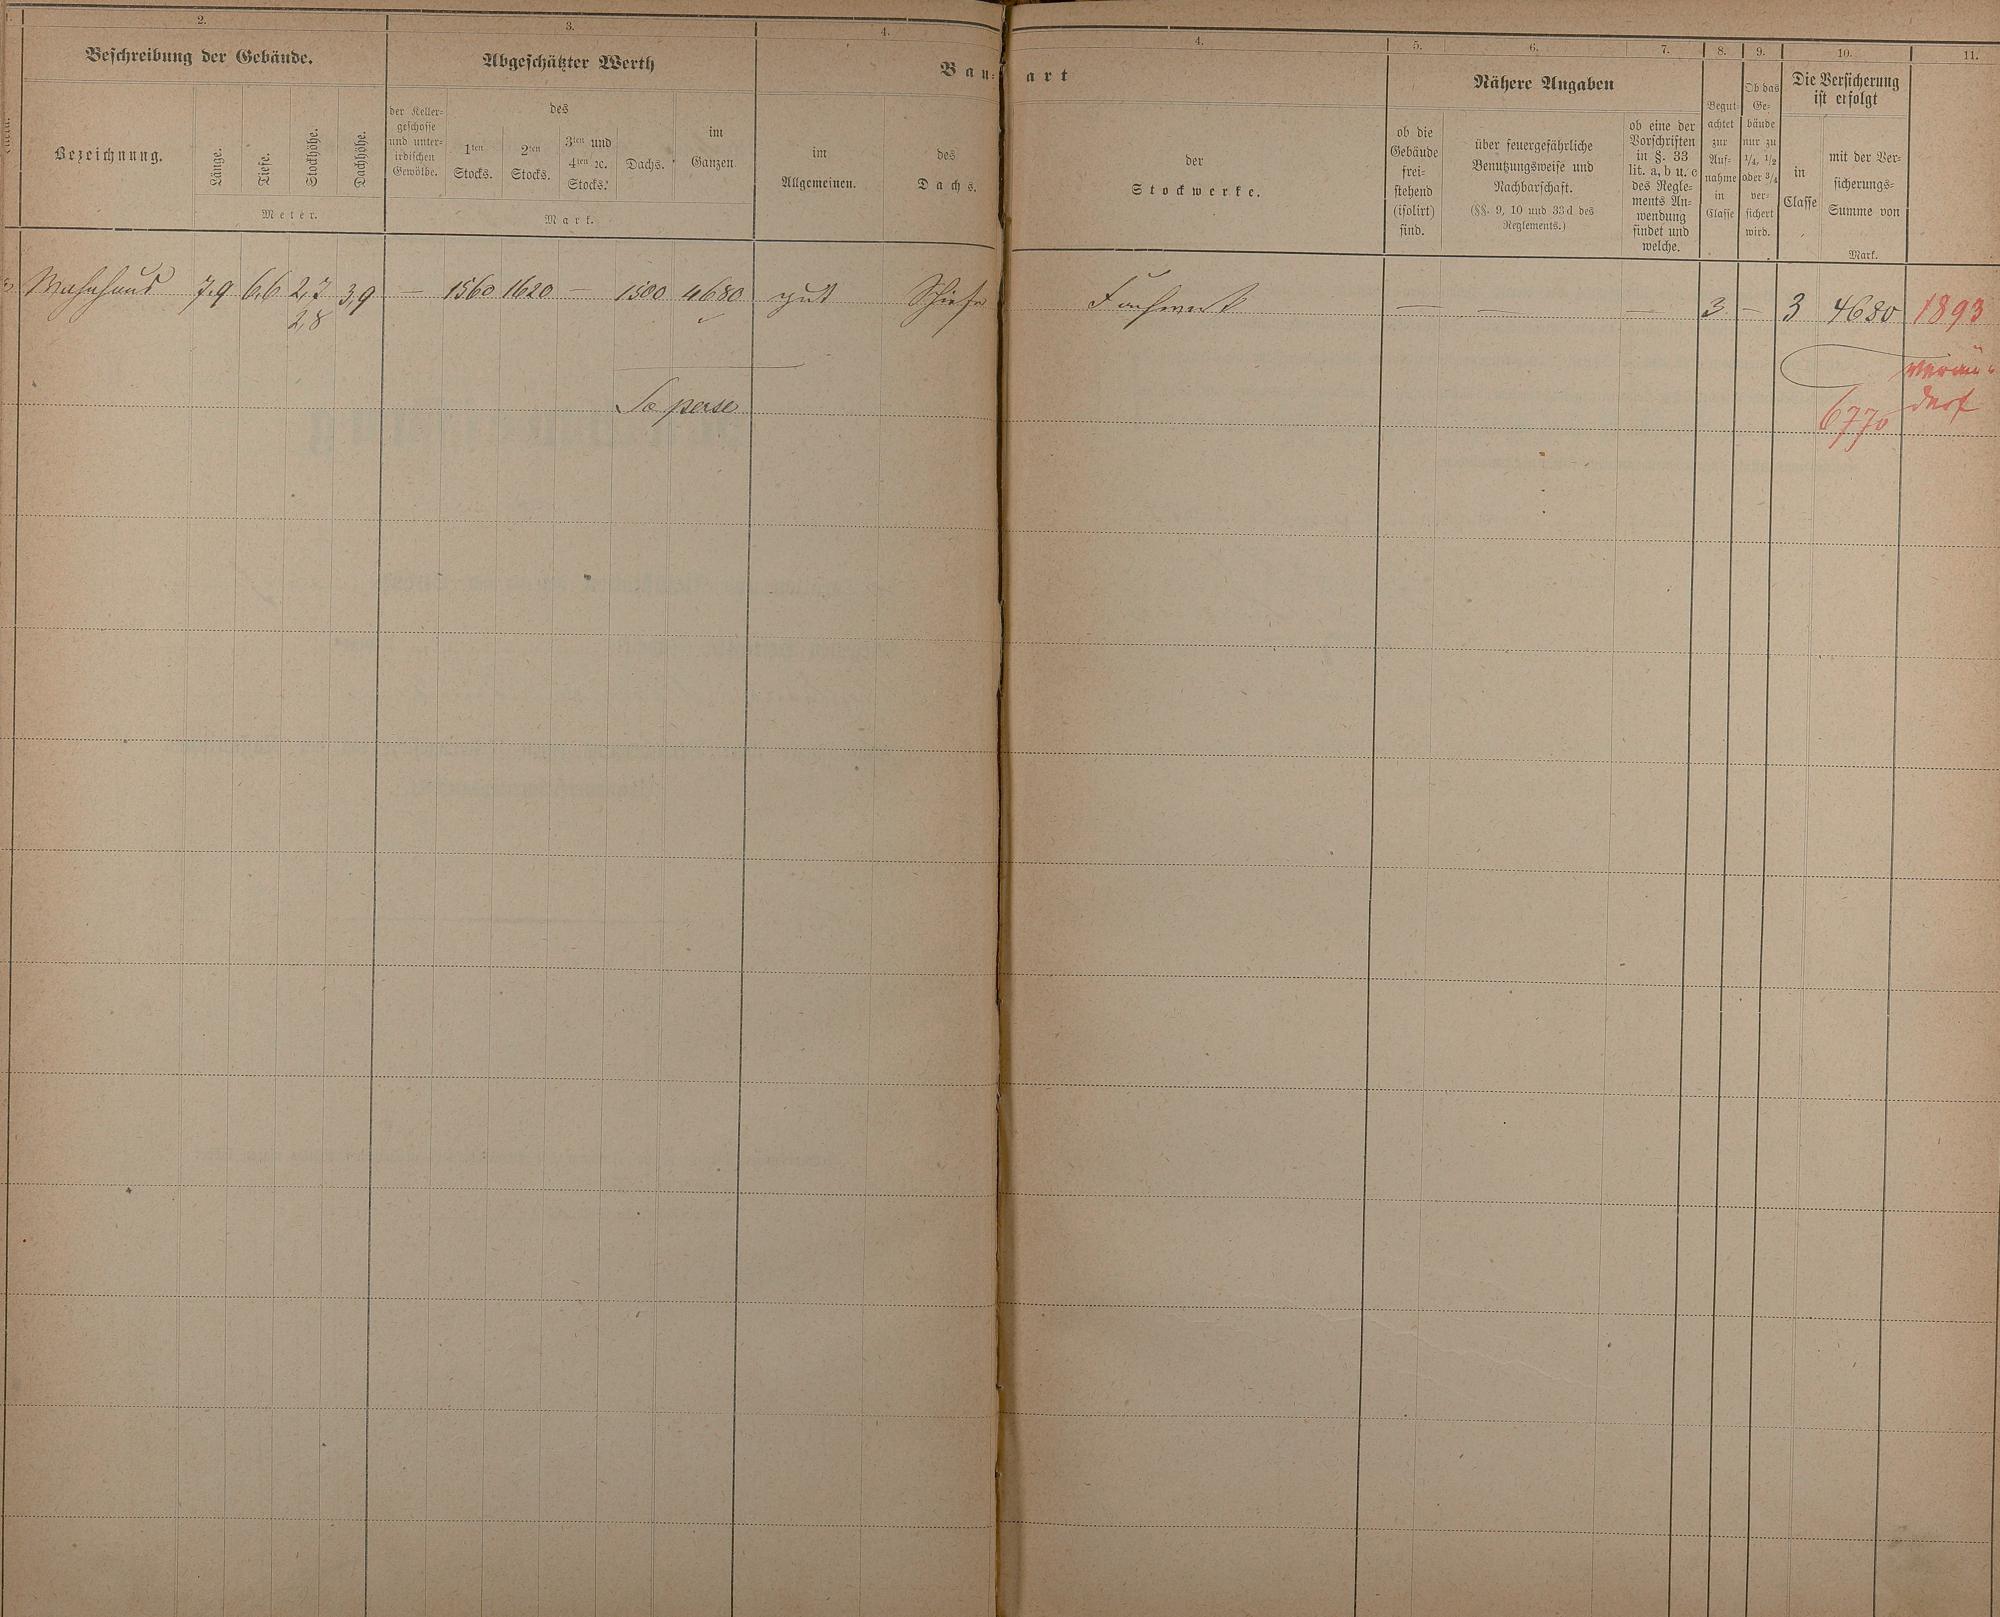 2.
3.
4.
4.
5.
6.
7.
8.
9.
10.
11.
Beschreibung der Gebäude.
Abgeschätzter Werth
Bau-
art
Nähere Angaben
Die Versicherung
ist erfolgt
Bezeichnung.
Länge.
Tiefe.
Stockhöhe.
Dachhöhe.
Meter.
der Keller-
geschosse
und unter-
irdischen
Gewölbe.
des
1ten
Stocks.
2ten
Stocks.
3ten und
4ten ꝛc.
Stocks.
Dachs.
im
Ganzen.
Mark.
im
Allgemeinen.
des
Dachs.
der
Stockwerke.
ob die
Gebäude
frei-
stehend
(isolirt)
sind.
über feuergefährliche
Benutzungsweise und
Nachbarschaft.
(§§. 9, 10 und 33d des
Reglements.)
ob eine der
Vorschriften
in §. 33
lit. a, b u. c
des Regle-
ments An-
wendung
findet und
welche.
Begut-
achtet
zur
Auf-
nahme
in
Classe
Ob das
Ge-
bäude
nur zu
1/4, 1/2
oder 3/4
ver-
sichert
wird.
in
Classe
mit der Ver-
sicherungs-
Summe von
Mark.
Wohnhaus 7,9 6,6 2,7 3,9 — 1560 1620 — 1500 4680 gut Schiefer Fachwerk — — — 3 — 3 4680 1893
2,8
verän-
dert
Sa per se
6770